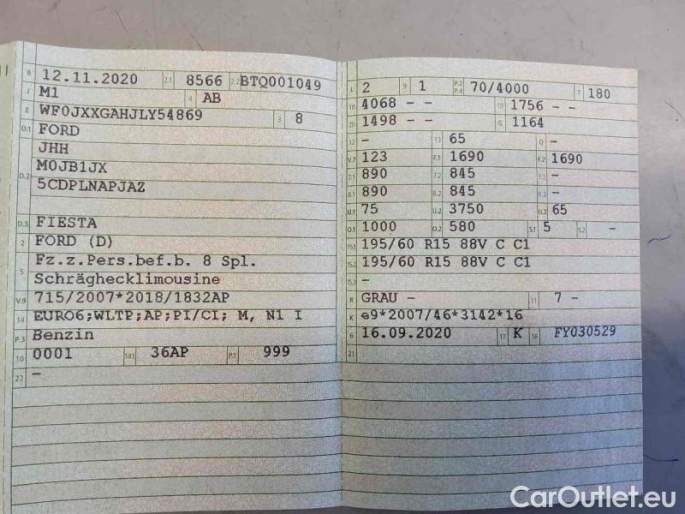 B 12.11.2020 2.1 8566 2.2 BTQ001049
J M1 4 AB
E WF0JXXGAHJLY54869 3 8
D.1 FORD
D.2 JHH
M0JB1JX
5CDPLNAPJAZ
D.3 FIESTA
2 FORD (D)
5 Fz.z.Pers.bef.b. 8 Spl.
Schräghecklimousine
V.9 715/2007*2018/1832AP
14 EURO6;WLTP;AP;PI/CI; M, N1 I
P.3 Benzin
10 0001 14.1 36AP P.1 999
22 –
L 2 9 1 P.2 P.4 70/4000 T 180
18 4068 – – 19 1756 – –
20 1498 – – G 1164
12 – 13 65 Q –
V.7 123 F.1 1690 F.2 1690
7.1 890 7.2 845 –
8.1 890 8.2 845 –
U.1 75 U.2 3750 U.3 65
O.1 1000 O.2 580 S.1 5 S.2 –
15.1 195/60 R15 88V C C1
15.2 195/60 R15 88V C C1
15.3 –
R GRAU – 11 7 –
K e9*2007/46*3142*16
6 16.09.2020 17 K 16 FY030529
21
CarOutlet.eu